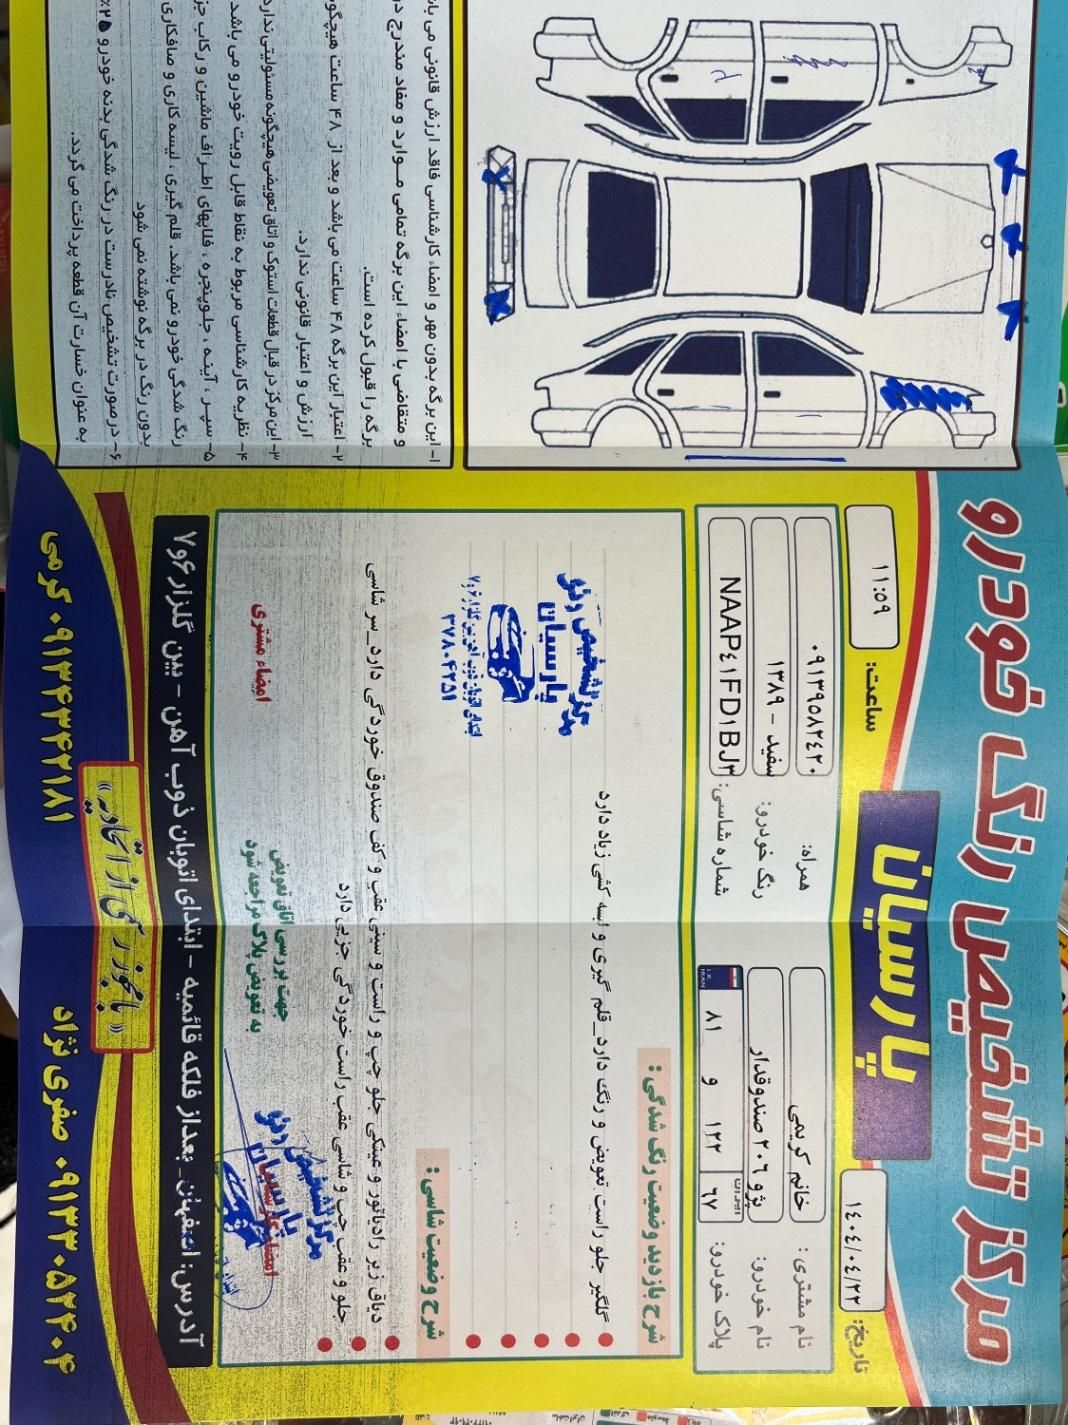 مرکز تشخیص رنگ خودرو
پارسیان
تاریخ: ۱۴۰۴/۰۴/۲۲
ساعت: ۱۱:۵۹
نام مشتری: خانم کریمی
همراه: ۰۹۱۳۹۵۸۲۴۲۰
نام خودرو: پژو ۲۰۶ صندوقدار
رنگ خودرو: سفید - ۱۳۸۹
پلاک خودرو: ایران ۶۷ ۱۲۲ و ۸۱
I.R. IRAN
شماره شاسی: NAAP۴۱FD۱BJ۳
شرح بازدید وضعیت رنگ شدگی:
گلگیر جلو راست تعویض و رنگ دارد_قلم گیری و لیسه کشی زیاد دارد
مرکز تشخیص رنگ
پارسیان
۳۷۸۰۴۲۵۱
شرح وضعیت شاسی:
دیاق زیر رادیاتور و عینکی جلو چپ و راست و سینی عقب و کف صندوق خوردگی دارد_سر شاسی
جلو و عقب چپ و شاسی عقب راست خوردگی جزیی دارد
جهت بررسی اتاق تعویض
به تعویض پلاک مراجعه شود
امضاء مشتری
مرکز تشخیص رنگ
پارسیان
آدرس: اصفهان - بعد از فلکه قائمیه - ابتدای اتوبان ذوب آهن - بین گلزار ۶ و ۷
« با مجوز رسمی از اتحادیه »
صفری نژاد ۰۹۱۳۳۰۵۲۴۰۴
کرمی ۰۹۱۳۴۳۴۲۱۸۱
۱- این برگه بدون مهر و امضاء کارشناسی فاقد ارزش قانونی می
و متقاضی با امضاء این برگه تمامی موارد و مفاد مندرج در
برگه را قبول کرده است.
۲- اعتبار این برگه ۴۸ ساعت می باشد و بعد از ۴۸ ساعت
ارزش و اعتبار قانونی ندارد.
۳- این مرکز در قبال قطعات استوک و اتاق تعویضی هیچگونه مسئولیتی ندارد
۴- نظریه کارشناسی مربوط به نقاط قابل رویت خودرو می باشد
۵- سپر، آینه، جلوپنجره، فلاپهای اطراف ماشین و رکاب
رنگ شدگی خودرو نمی باشد. قلم گیری، لیسه کاری و صافکاری
بدون رنگ در برگه نوشته نمی شود
۶- در صورت تشخیص نادرست در رنگ شدگی بدنه خودرو
به عنوان خسارت آن قطعه پرداخت می گردد.